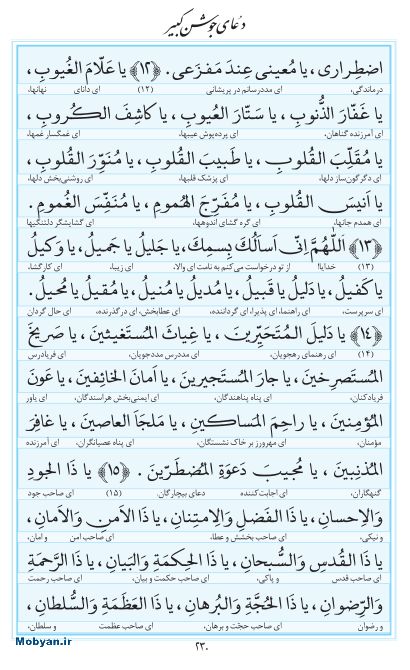 دعای جوشن کبیر
اضطراری ، یا مُعینی عِندَ مَفزَعی . ﴿۱۲﴾ یا عَلّامَ الغُیوبِ ،
درماندگی، ای مددرسانم در پریشانی (۱۲) ای دانای نهانها،
یا غَفّارَ الذُّنوبِ ، یا سَتّارَ العُیوبِ ، یا کاشِفَ الکُروبِ ،
ای آمرزنده گناهان، ای پرده‌پوش عیبها، ای غمگسار غمها،
یا مُقَلِّبَ القُلوبِ ، یا طَبیبَ القُلوبِ ، یا مُنَوِّرَ القُلوبِ ،
ای دگرگون‌ساز دلها، ای پزشک قلبها، ای روشنی‌بخش دلها،
یا اَنیسَ القُلوبِ ، یا مُفَرِّجَ الهُمومِ ، یا مُنَفِّسَ الغُمومِ .
ای همدم جانها، ای گره گشای اندوهها، ای گشایشگر دلتنگیها
﴿۱۳﴾ اَللّٰهُمَّ اِنّی اَسأَلُكَ بِسمِكَ ، یا جَلیلُ یا جَمیلُ ، یا وَکیلُ
(۱۳) خدایا! از تو درخواست می‌کنم به نامت ای والا، ای زیبا، ای کارگشا،
یا کَفیلُ ، یا دَلیلُ یا قَبیلُ ، یا مُدیلُ یا مُنیلُ ، یا مُقیلُ یا مُحیلُ .
ای سرپرست، ای راهنما، ای پذیرا، ای گرداننده، ای عطابخش، ای درگذرنده، ای حال گردان
﴿۱۴﴾ یا دَلیلَ المُتَحَیِّرینَ ، یا غِیاثَ المُستَغیثینَ ، یا صَریخَ
(۱۴) ای رهنمای رهجویان، ای مددرس مددجویان، ای فریادرس
المُستَصرِخینَ ، یا جارَ المُستَجیرینَ ، یا اَمانَ الخائِفینَ ، یا عَونَ
فریادکنان، ای پناه پناهندگان، ای ایمنی‌بخش هراسندگان، ای یاور
المُؤمِنینَ ، یا راحِمَ المَساکینِ ، یا مَلجَأَ العاصینَ ، یا غافِرَ
مؤمنان، ای مهرورز بر خاک نشستگان، ای پناه عصیانگران، ای آمرزنده
المُذنِبینَ ، یا مُجیبَ دَعوَةِ المُضطَرّینَ . ﴿۱۵﴾ یا ذَا الجودِ
گنهگاران، ای اجابت‌کننده دعای بیچارگان. (۱۵) ای صاحب جود
وَالاِحسانِ ، یا ذَا الفَضلِ وَالاِمتِنانِ ، یا ذَا الاَمنِ وَالاَمانِ ،
و نیکی، ای صاحب بخشش و عطا، ای صاحب امن و امان،
یا ذَا القُدسِ وَالسُّبحانِ ، یا ذَا الحِکمَةِ وَالبَیانِ ، یا ذَا الرَّحمَةِ
ای صاحب قدس و پاکی، ای صاحب حکمت و بیان، ای صاحب رحمت
وَالرِّضوانِ ، یا ذَا الحُجَّةِ وَالبُرهانِ ، یا ذَا العَظَمَةِ وَالسُّلطانِ ،
و رضوان، ای صاحب حجّت و برهان، ای صاحب عظمت و سلطان،
۲۳۰
Mobyan.ir